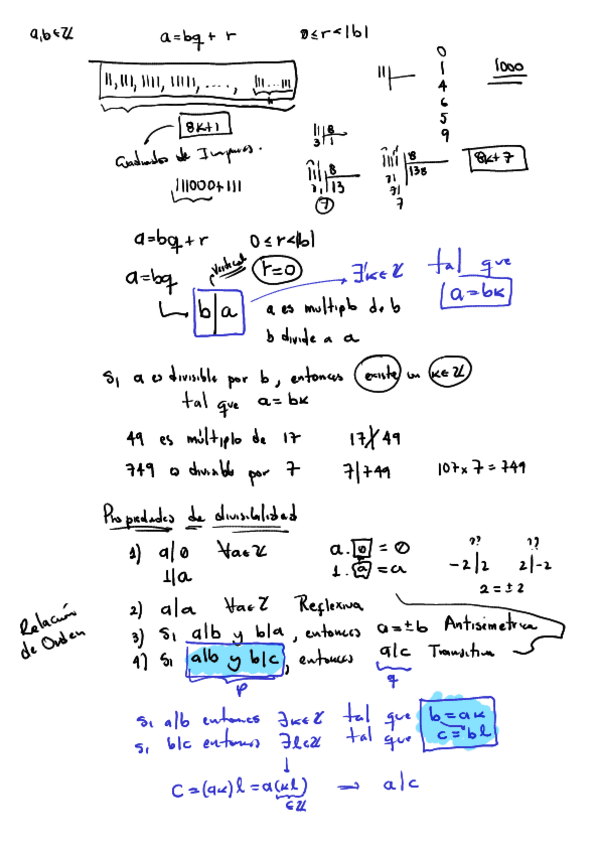 a,b∈ℤ a=bq + r 0≤r<|b|
11, 111, 1111, 11111, ...., 111...111
0
1
4
6
5
9
1000
8k+1
Cuadrados de Impares.
111000+111
111 8
3 1
1111 8
7 13
7
11111 8
31 138
71
7
8k+7
a=bq+r 0≤r<|b|
a=bq vertical r=0 ∃k∈ℤ tal que
a=bk
b|a a es multiplo de b
b divide a a
Si a es divisible por b, entonces existe un k∈ℤ
tal que a=bk
49 es múltiplo de 17 17∤49
749 es divisible por 7 7|749 107x7=749
Propiedades de divisibilidad
1) a|0 ∀a∈ℤ a.0=0
1|a 1.a=a
?? ??
-2|2 2|-2
2=±2
Relación
de Orden
2) a|a ∀a∈ℤ Reflexiva
3) Si a|b y b|a, entonces a=±b Antisimetrica
4) Si a|b y b|c, entonces a|c Transitiva
p q
Si a|b entonces ∃k∈ℤ tal que b=ak
Si b|c entonces ∃l∈ℤ tal que c=bl
↓
C=(ak)l=a(kl) → a|c
∈ℤ